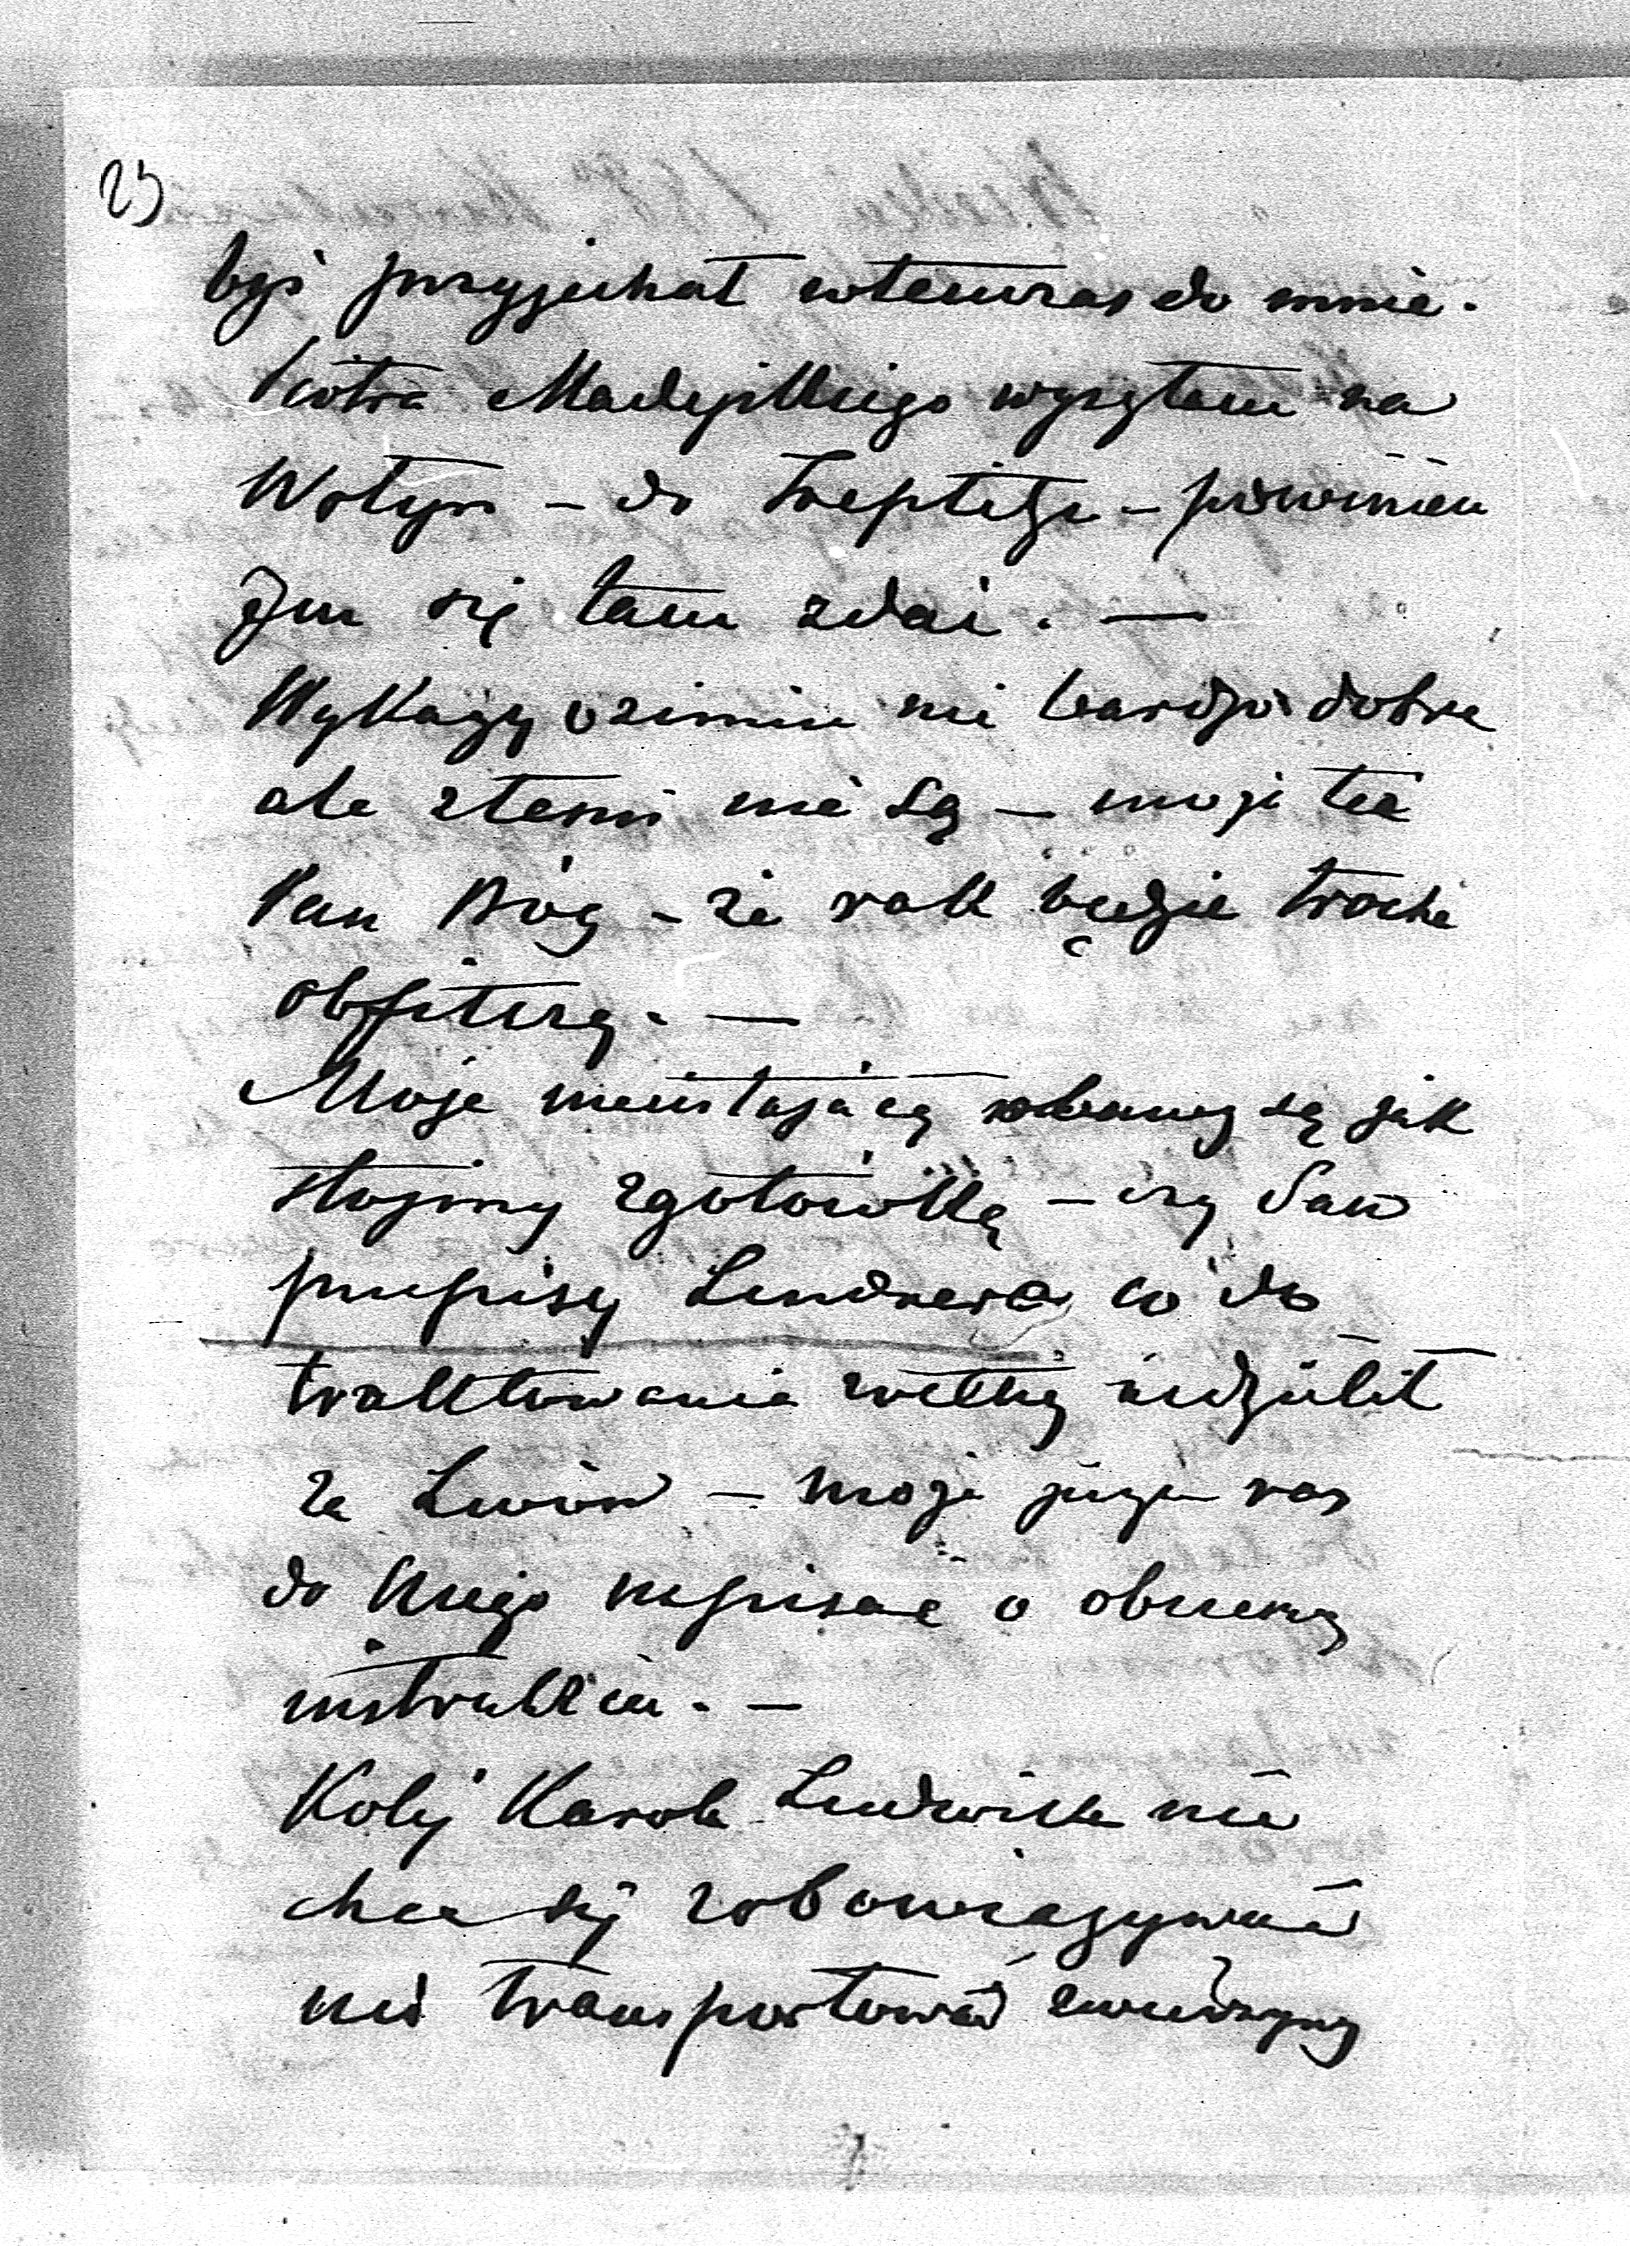 2)
byś przyjechał wtenczas do mnie.
Piotra Madejskiego wysyłam na
Wołyń – do Treptego – powinien
Jen się tam zdać. —
Wykazy ozimin nie bardzo dobre
ale złemi nie są – może też
Pan Bóg – że rok będzie trochę
obfitszy. —
Moje nieustające obawy są jak
stojemy z gotówką – czy Pan
przepisy Lendnera co do
traktowania wełny udzielił
za Lwów – może jeszcze raz
do niego napisać o obszerną
instrukcię. —
Kolej Karola Ludwika nie
chce się zobowiązywać
nie transportować zwierzyny